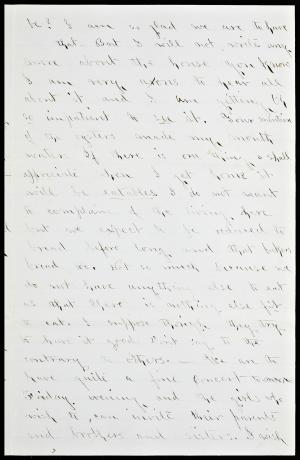 be? I am so glad we are to have
that. But I will not write any
more about the house you know
I am very to hear all
about it and I am getting
so impatient to see it. Your mention
of the oysters made my mouth
water. If there is one thing I shall
appreciate when I get home it
will be eatables. I do not want
to complain of the living here
but we expect to be reduced to
bread before long, and that baker's
bread so. Not so much because we
do not have anything else to eat
as that there is nothing else fit
to eat. I suppose though, they try
to have it good. to the
contrary to others. — We are to
have quite a fine concert
Friday evening and the girls who
wish to, can invite their parents
and brothers and sisters. I wish